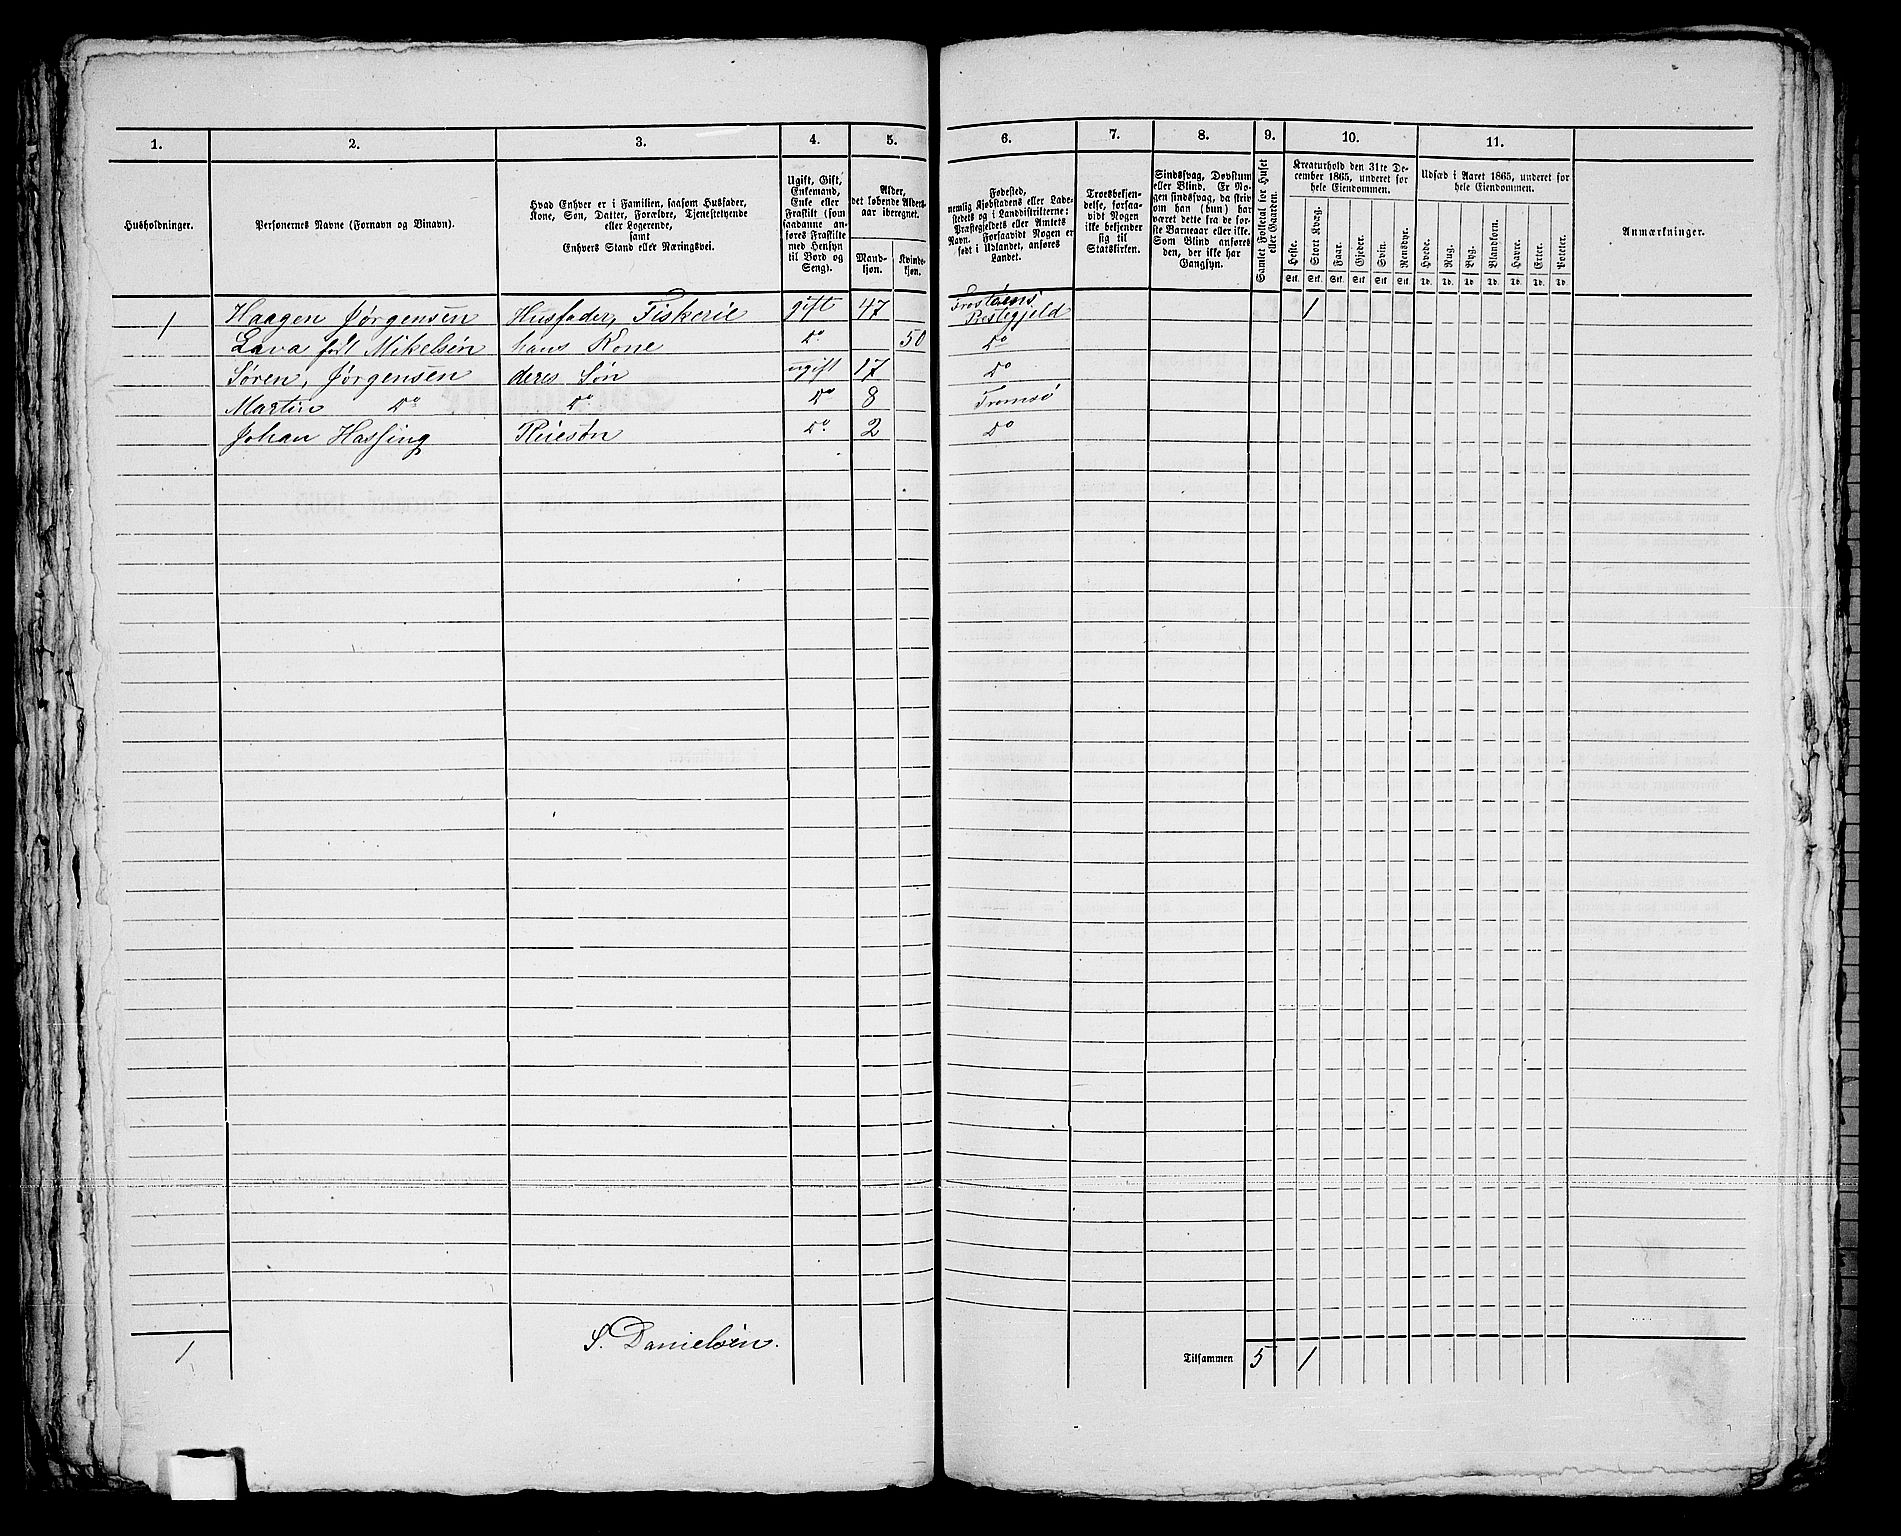 1.
2.
3.
4.
5.
6.
7.
8.
9.
10.
11.
Husholdninger.
Personernes Navne (Fornavn og Binavn).
Hvad Enhver er i Familien, saasom Husfader,
Kone, Søn, Datter, Forældre, Tjenestetyende
eller Logerende,
samt
Enhvers Stand eller Næringsvei.
Ugift, Gift,
Enkemand,
Enke eller
Fraskilt (som
saadanne an-
føres Fraskilte
med Hensyn
til Bord og
Seng).
Alder,
det løbende Alders-
aar iberegnet.
Mand-
kjøn.
Kvinde-
kjøn.
Fødested,
nemlig Kjøbstadens eller Lade-
stedets og i Landdistrikterne:
Præstegjeldets eller Amtets
Navn. Forsaavidt Nogen er
født i Udlandet, anføres
Landet.
Troesbekjen-
delse, forsaa-
vidt Nogen
ikke bekjender
sig til
Statskirken.
Sindssvag, Døvstum
eller Blind. Er No-
gen sindssvag, da skriv
om han (hun) har
været dette fra de før-
ste Barneaar eller ikke.
Som Blind anføres
den, der ikke har
Gangsyn.
Samlet Folketal for Huset
eller Gaarden.
Kreaturhold den 31te De-
cember 1865, underet for
hele Eiendommen.
Heste.
Stort Kvæg.
Faar.
Gjeder.
Svin.
Rensdyr.
Stk. Stk. Stk. Stk. Stk. Stk.
Udsæd i Aaret 1865, underet for
hele Eiendommen.
Hvede.
Rug.
Byg.
Blandkorn.
Havre.
Erter.
Poteter.
Td. Td. Td. Td. Td. Td. Td.
Anmærkninger.
1 Haagen Jørgensen Husfader, Fiskerie gift 47 Prestegjeld 1
Lava født Mikelsen hans Kone Do 50 Do
Søren, Jørgensen deres Søn ugift 17 Do
Martin Do Do Do 8 Tromsø
Johan Hassing Pleiesøn Do 2 Do
1
S. Danielsen.
Tilsammen 5 1